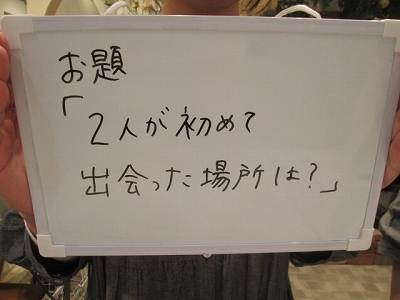 お題
「2人が初めて
出会った場所は?」